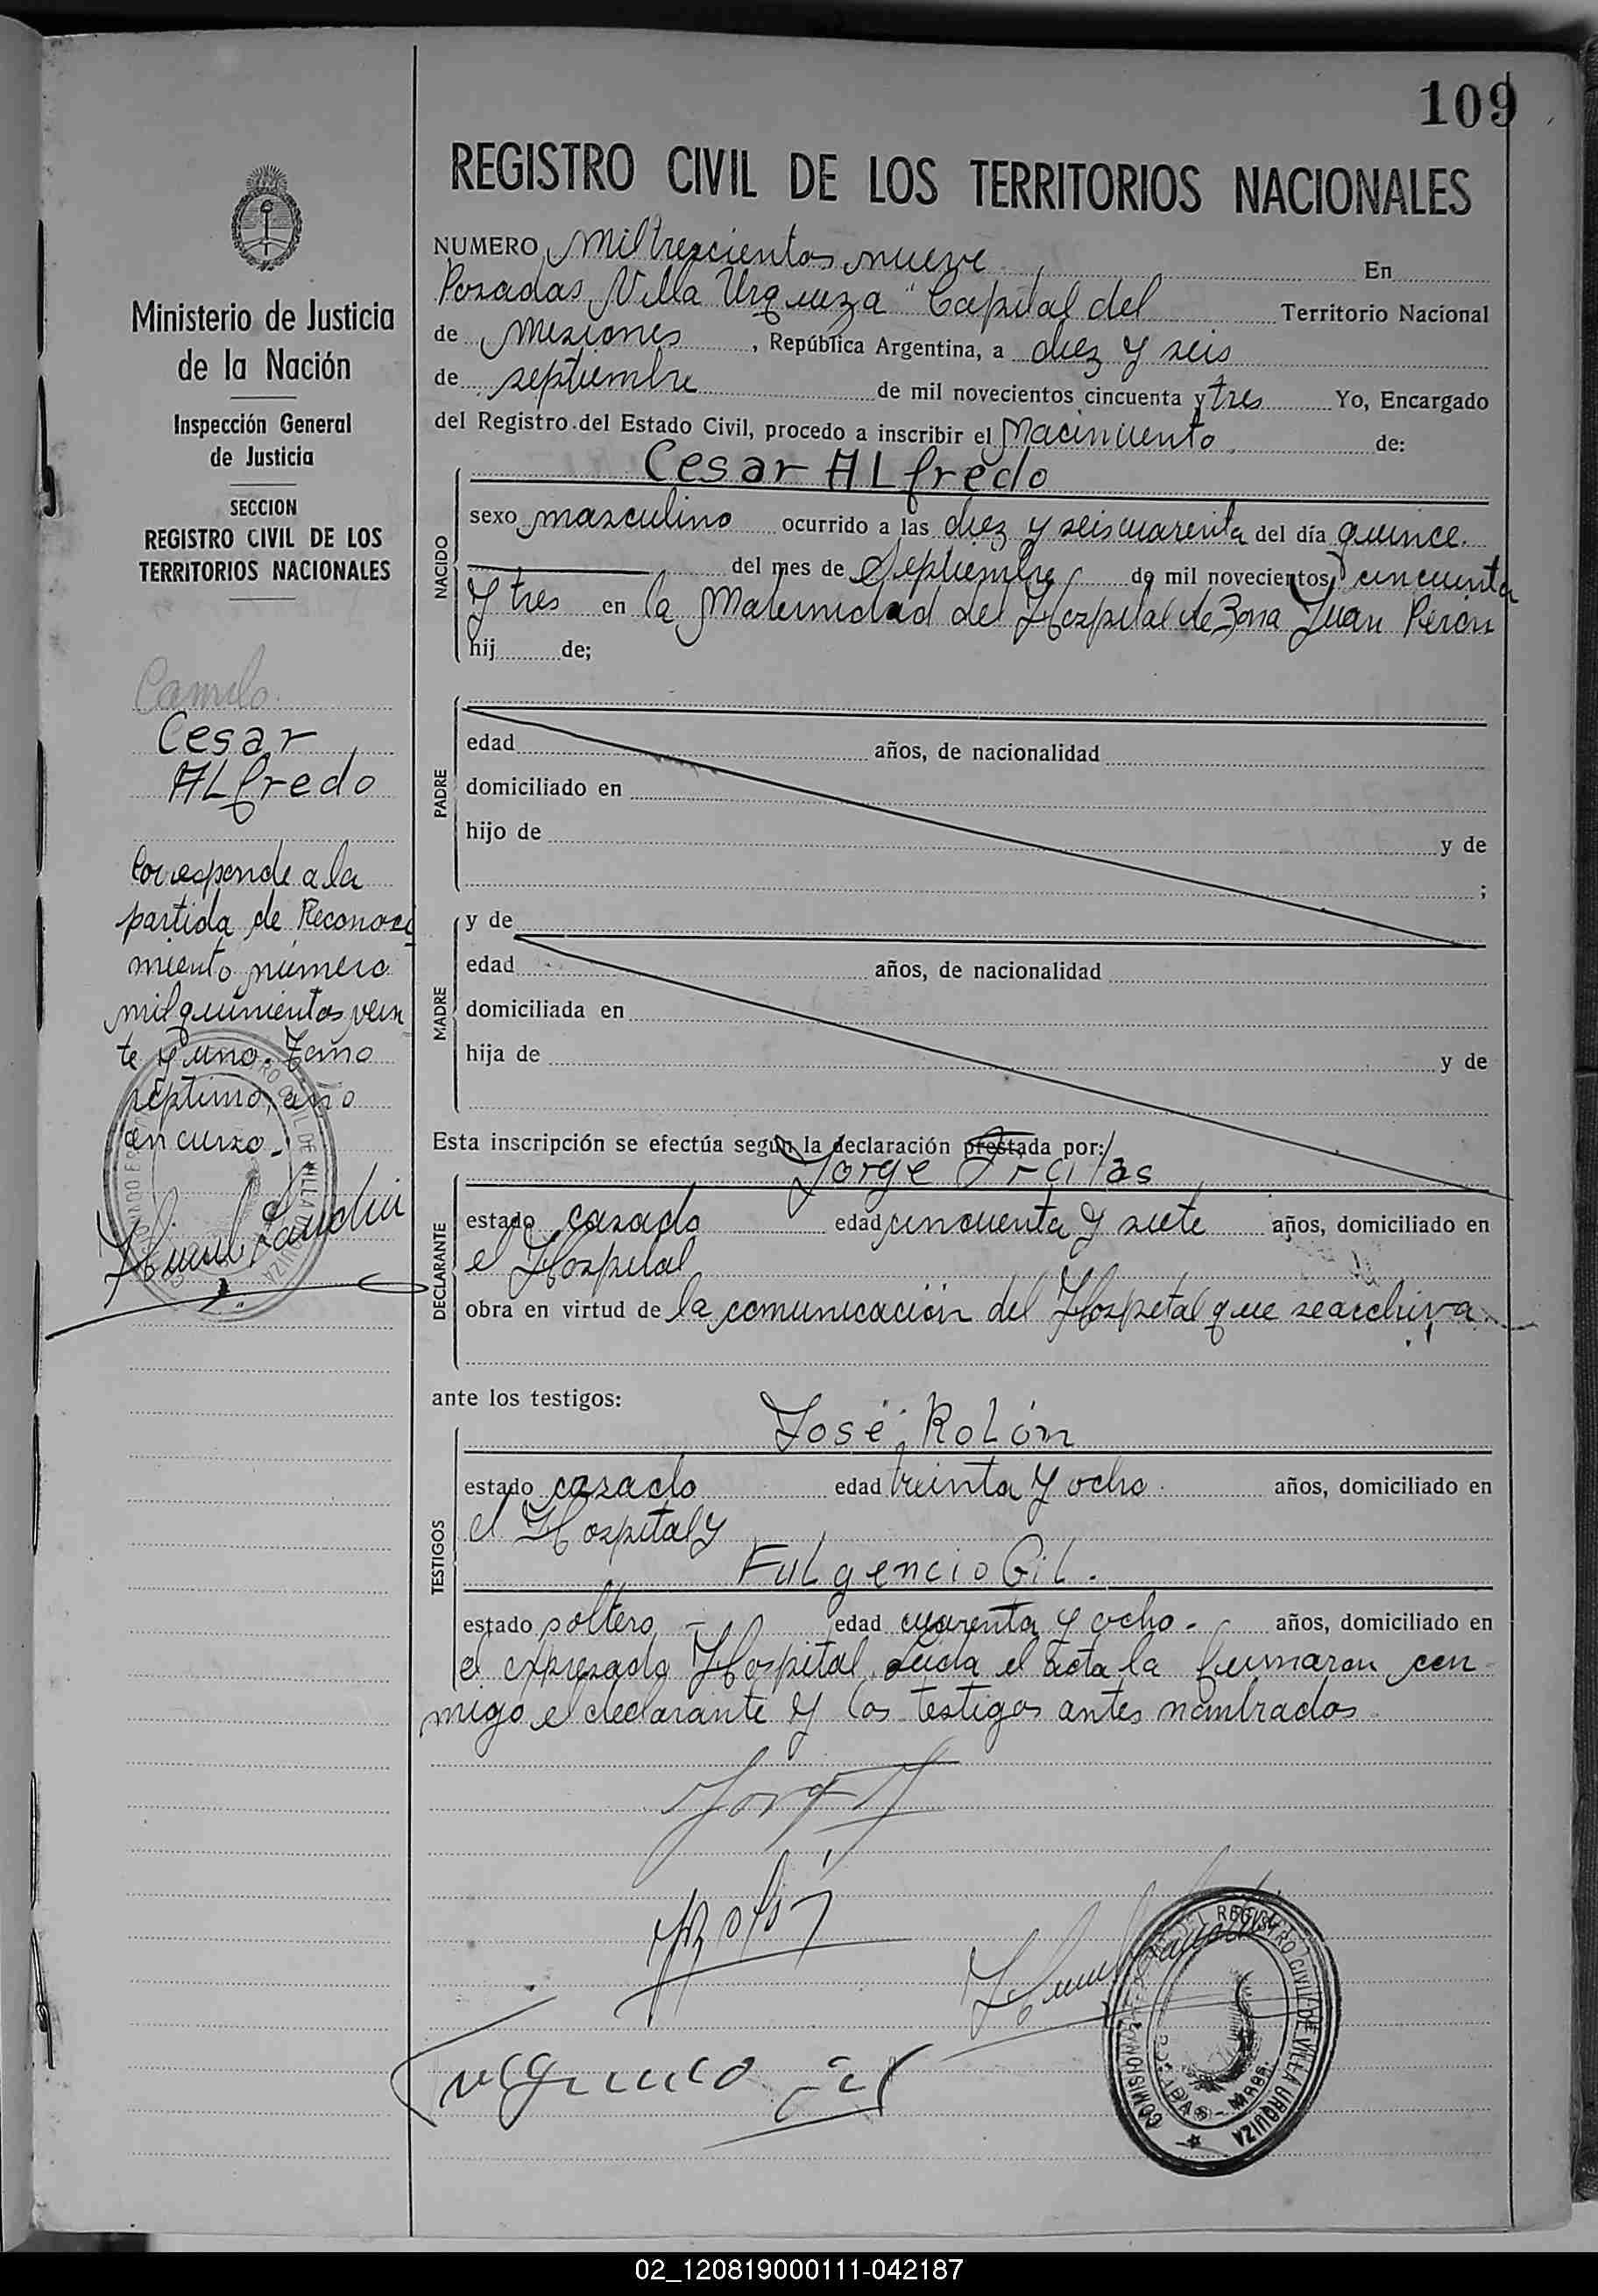 109
REGISTRO CIVIL DE LOS TERRITORIOS NACIONALES
NUMERO Miltrescientos nueve En
Posadas, Villa Urquiza "Capital del Territorio Nacional
de Misiones, República Argentina, a diez y seis
de septiembre de mil novecientos cincuenta y tres Yo, Encargado
del Registro del Estado Civil, procedo a inscribir el Nacimiento de:
Cesar ALfredo
NACIDO
sexo masculino ocurrido a las diez y seis cuarenta del día quince
del mes de Septiembre de mil novecientos cincuenta
y tres en la Maternidad del Hospital de Zona Juan Perón
hij de;
PADRE
edad años, de nacionalidad
domiciliado en
hijo de y de
;
MADRE
y de
edad años, de nacionalidad
domiciliada en
hija de y de
Esta inscripción se efectúa según la declaración prestada por:
Jorge
DECLARANTE
estado casado edad cincuenta y siete años, domiciliado en
el Hospital
obra en virtud de la comunicación del Hospital que se archiva
ante los testigos:
José Rolón
TESTIGOS
estado casado edad treinta y ocho años, domiciliado en
el Hospital y
Fulgencio Gil.
estado soltero edad cuarenta y ocho - años, domiciliado en
el expresado Hospital. Leida el acta la firmaron con
migo el declarante y los testigos antes nombrados
Ministerio de Justicia
de la Nación
Inspección General
de Justicia
SECCION
REGISTRO CIVIL DE LOS
TERRITORIOS NACIONALES
Camilo
Cesar
ALfredo
Corresponde a la
partida de Reconoci
miento número
mil quinientos vein
te y uno. Tomo
septimo, año
en curso.-
DEL REGISTRO CIVIL DE VILLA URQUIZA
POSADAS - Mnes.
02_120819000111-042187